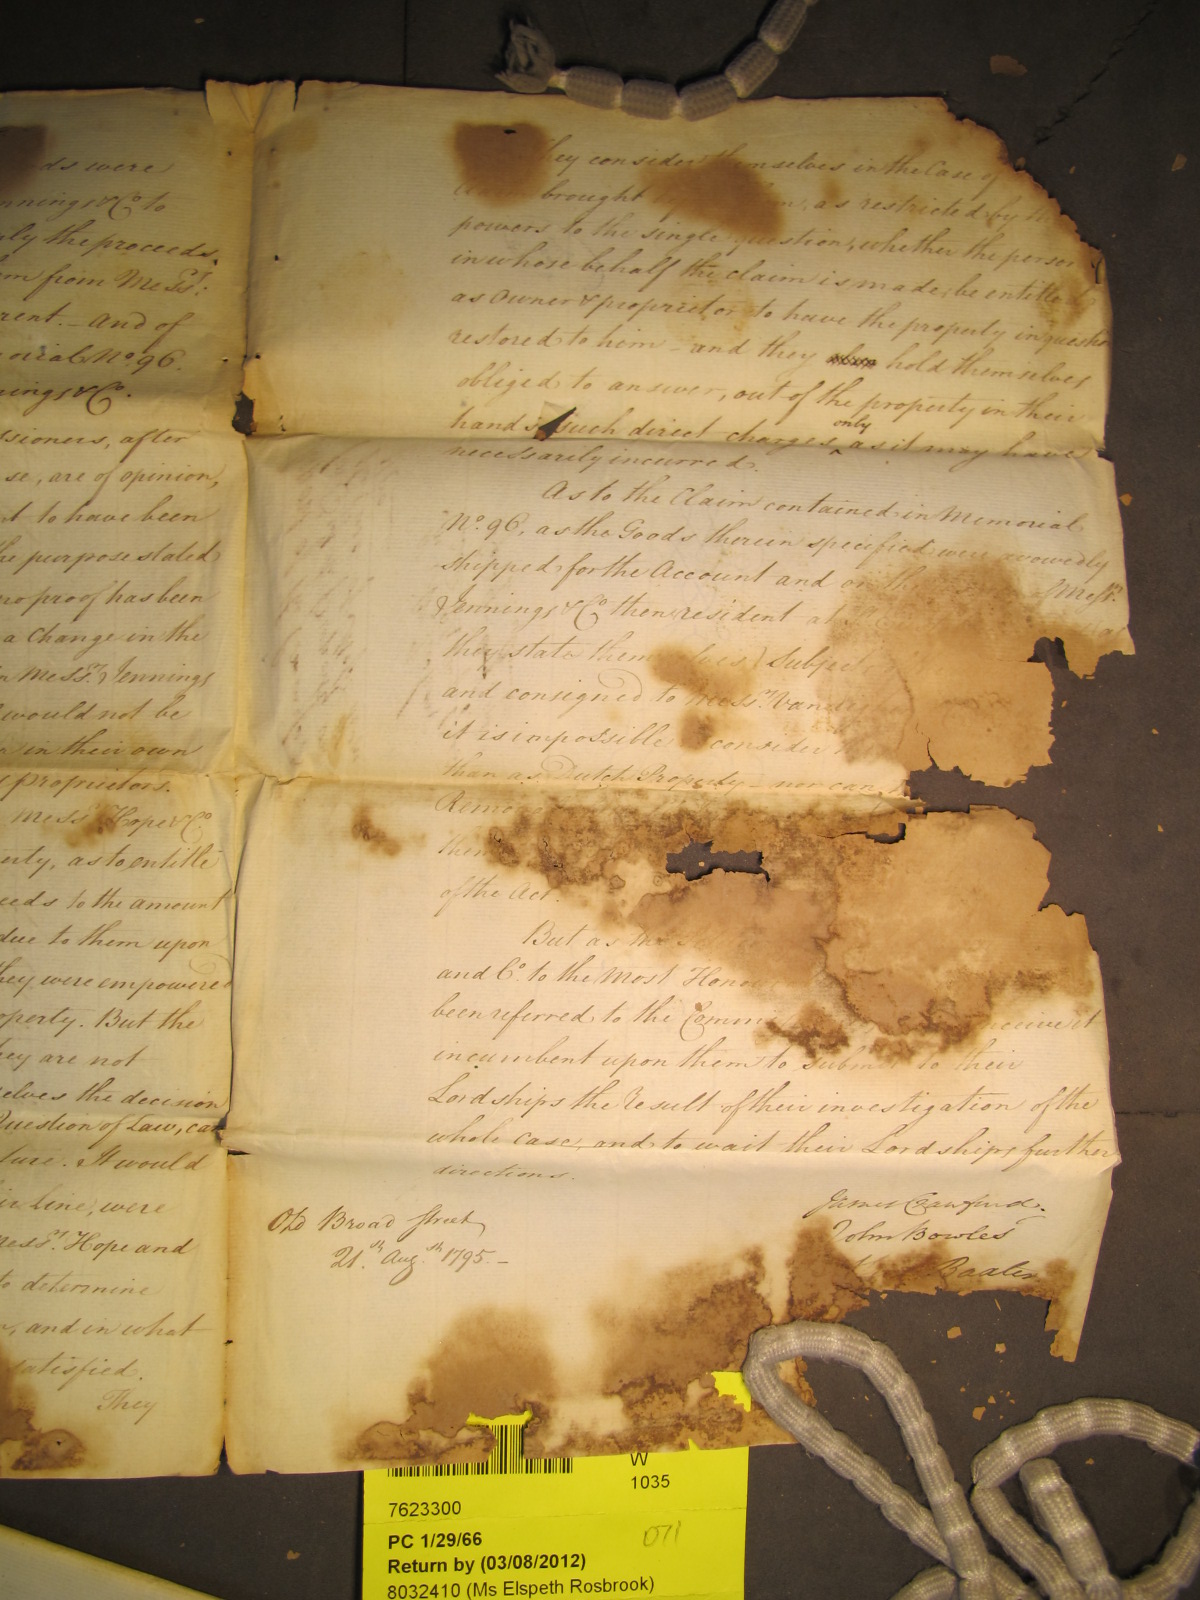 ds were
nnings & Co. to
ly the proceeds,
m from Messrs.
rent. - And of
orial No. 96.
nings & Co.
sioners, after
se, are of opinion,
t to have been
he purpose stated
no proof has been
a Change in the
n Messrs. Jennings
would not be
in their own
proprietors.
Messrs. Hope & Co
erty, as to entitle
eeds to the amount
due to them upon
hey were empowered
operty. But the
hey are not
selves the decision
Question of Law, can
ture. It would
ir line, were
Messrs. Hope and
to determine
, and in what
satisfied.
They
hey consider themselves in the Case of
brought as restricted by
powers to the single question, whether the person
in whose behalf the claim is made, be entitled
as Owner & proprietor to have the property in question
restored to him - and they hold themselves
obliged to answer, out of the property in their
hands, such direct charges only as it may have
necessarily incurred.
As to the Claim contained in Memorial
No. 96, as the Goods therein specified were avowedly
shipped for the Account and on th Messrs.
Jennings & Co. then resident at
they state themselves) Subject
and consigned to Messrs. Vande
it is impossible consider
than as Dutch Property - nor can
Remo
them
of the Act.
But as
and Co. to the Most Hono
been referred to the Commi nceive it
incumbent upon them to submit to their
Lordships the Result of their investigation of the
whole case, and to wait their Lordships further
directions.
Old Broad Street
21st. Augst. 1795 -
James Craufurd.
John Bowles
Baalen
W
1035
7623300
PC 1/29/66
071
Return by (03/08/2012)
8032410 (Ms Elspeth Rosbrook)